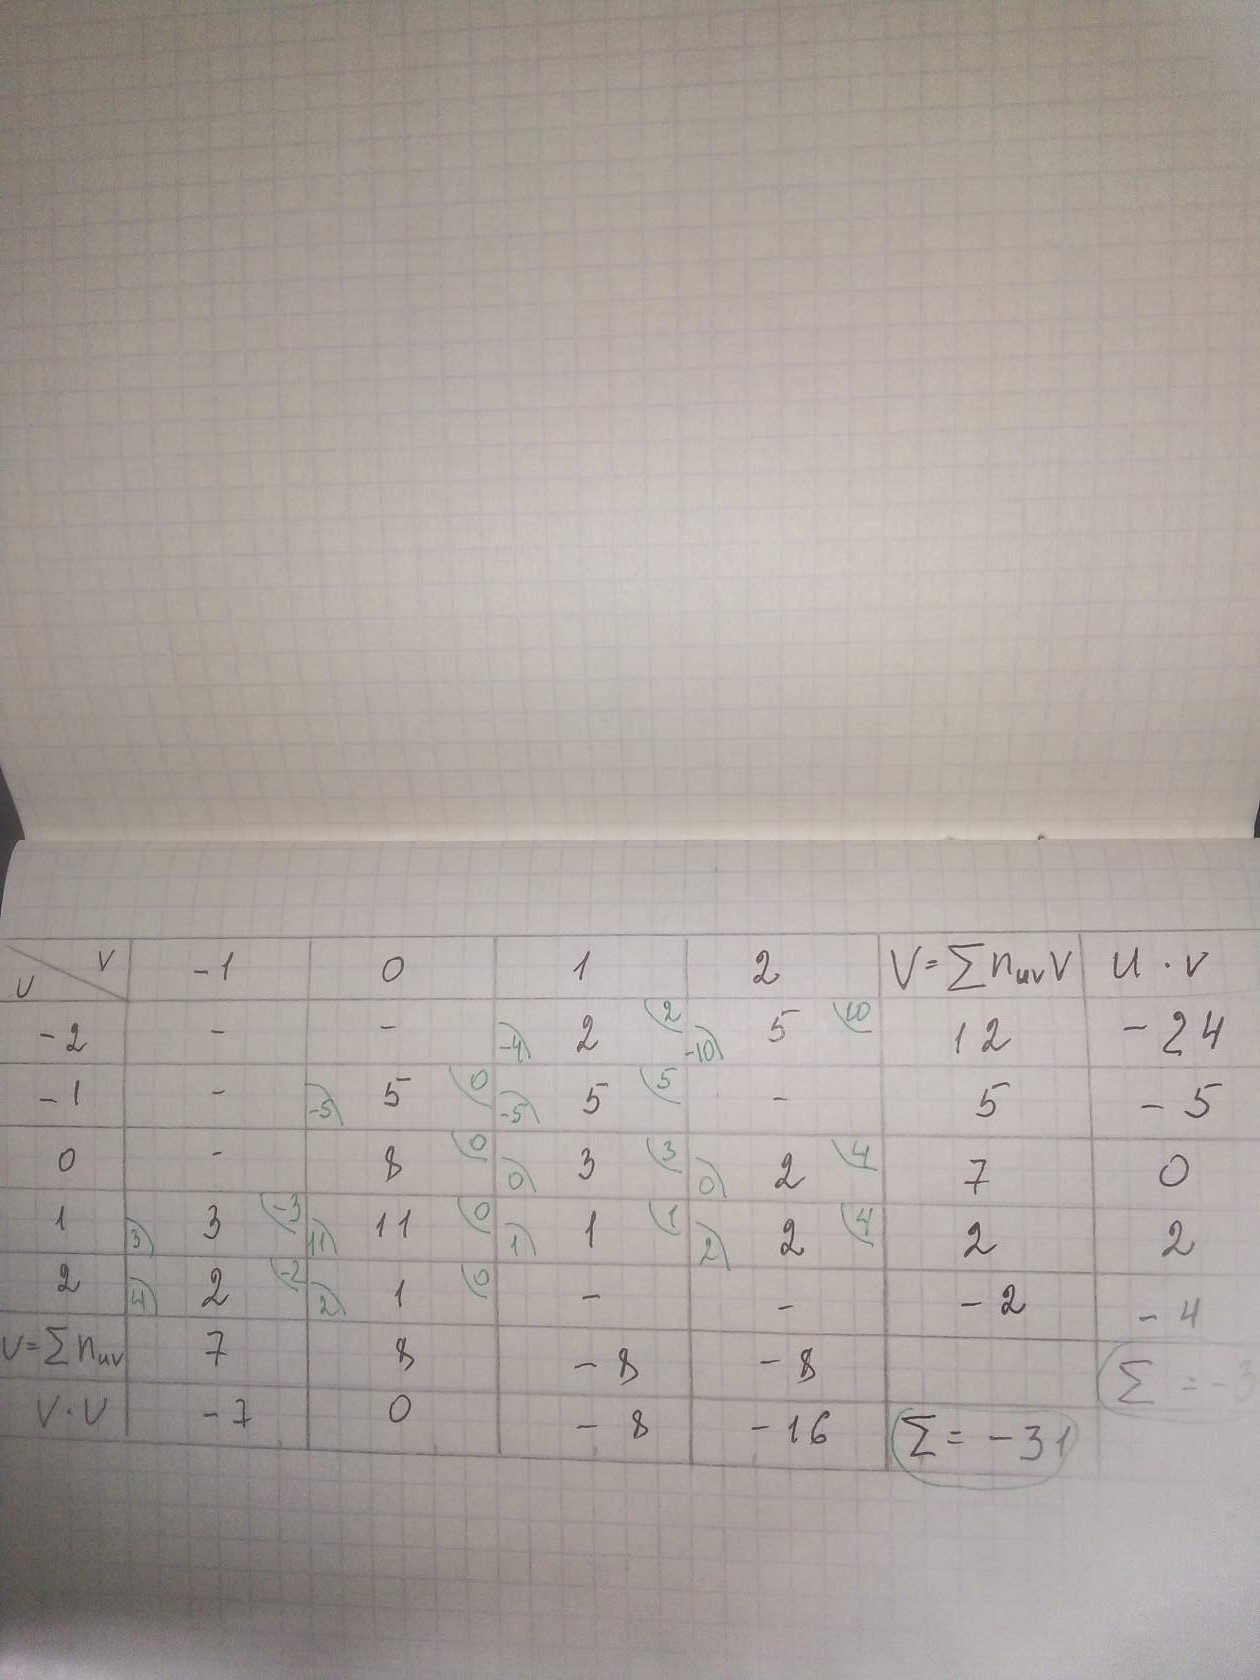 U V -1 0 1 2 V=∑nuvV U·v
-2 - - -4 2 2 -10 5 10 12 -24
-1 - -5 5 0 -5 5 5 - 5 -5
0 - 8 0 0 3 3 0 2 4 7 0
1 3 3 -3 11 11 0 1 1 1 2 2 4 2 2
2 4 2 -2 2 1 0 - - -2 -4
U=∑nuv 7 8 -8 -8
V·U -7 0 -8 -16 ∑=-31
∑=-3